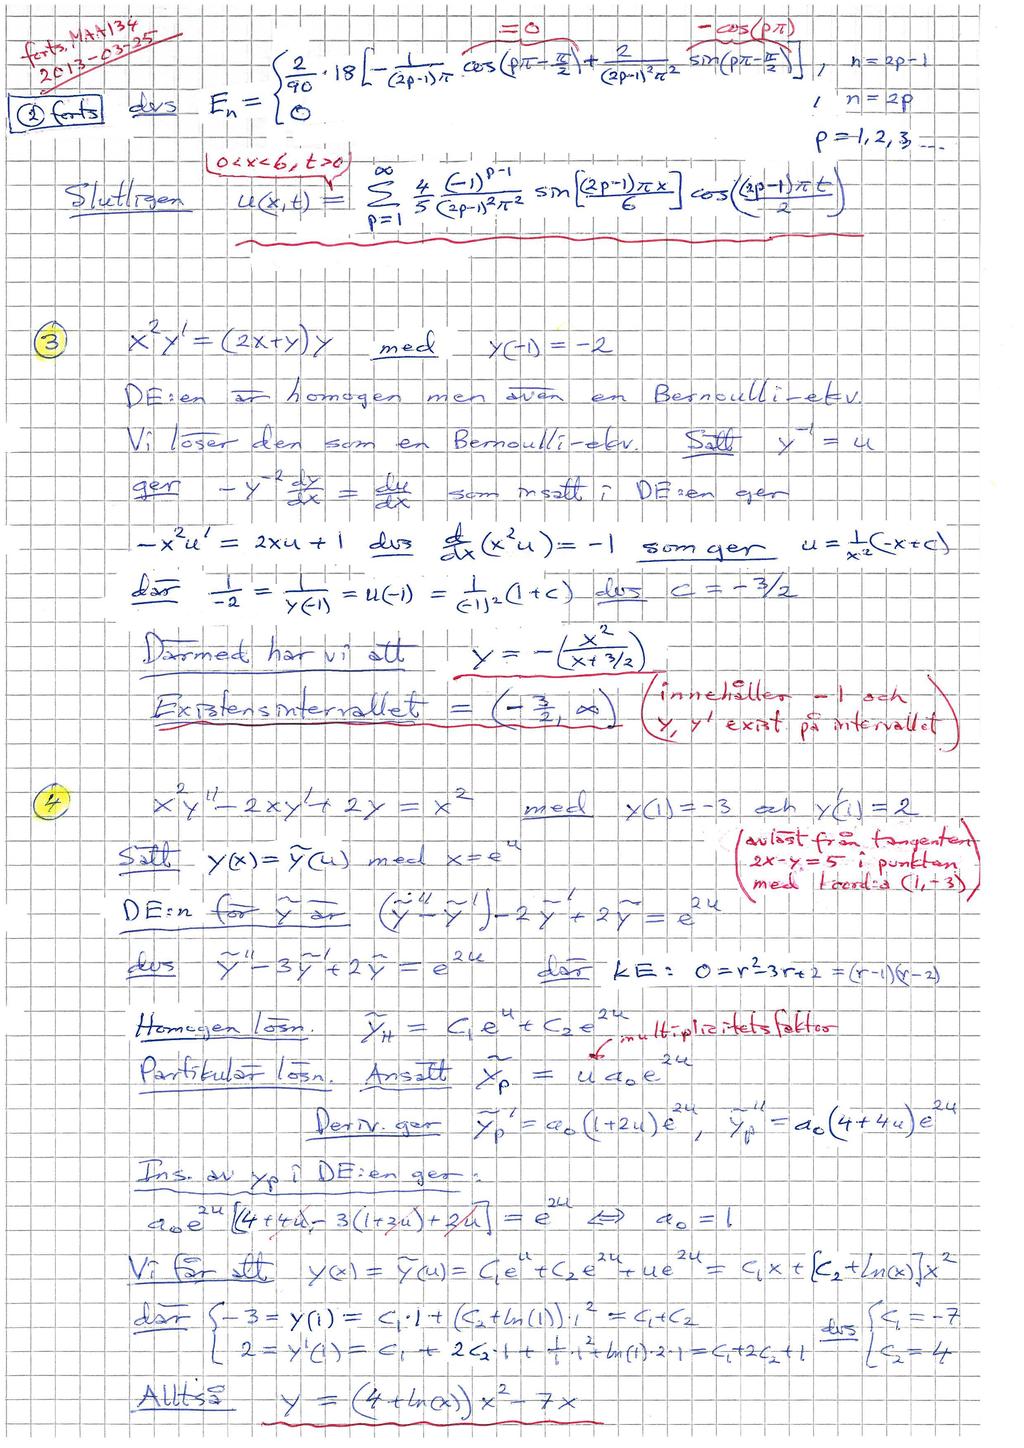 forts, MAA134
2013-03-25
② forts dvs E_n = { 2/90 · 18 [ - 1/((2p-1)π) cos(pπ - π/2) + 2/((2p-1)²π²) sin(pπ - π/2) ] , n = 2p-1
= 0
- cos(pπ)
0 , n = 2p
p = 1, 2, 3, ...
0<x<6, t>0
Slutligen u(x,t) = ∑_{p=1}^{∞} 4/5 (-1)^{p-1}/((2p-1)²π²) sin[(2p-1)πx/6] cos((2p-1)πt/2)
③ x²y' = (2x+y)y med y(-1) = -2
DE:en är homogen men även en Bernoulli-ekv.
Vi löser den som en Bernoulli-ekv. Sätt y^{-1} = u
ger -y^{-2} dy/dx = du/dx som insatt i DE:en ger
-x²u' = 2xu + 1 dvs d/dx (x²u) = -1 som ger u = 1/x² (-x+c)
där 1/-2 = 1/y(-1) = u(-1) = 1/(-1)² (1+c) dvs c = -3/2
Därmed har vi att y = -(x²/(x+3/2))
Existensintervallet = (-3/2, ∞) (innehåller -1 och
y, y' exist på intervallet)
④ x²y'' - 2xy' + 2y = x² med y(1) = -3 och y'(1) = 2
(avläst från tangenten
2x-y=5 i punkten
med koord:a (1,-3))
Sätt y(x) = ỹ(u) med x = e^u
DE:n för ỹ är (ỹ'' - ỹ') - 2ỹ' + 2ỹ = e^{2u}
dvs ỹ'' - 3ỹ' + 2ỹ = e^{2u} där KE: 0 = r²-3r+2 = (r-1)(r-2)
Homogen lösn. ỹ_H = C₁e^u + C₂e^{2u}
multiplicitetsfaktor
Partikulär lösn. Ansätt ỹ_p = u a₀e^{2u}
Deriv. ger ỹ_p' = a₀(1+2u)e^{2u}, ỹ_p'' = a₀(4+4u)e^{2u}
Ins. av y_p i DE:en ger:
a₀e^{2u} [(4+4u) - 3(1+2u) + 2u] = e^{2u} ⇔ a₀ = 1
Vi får att y(x) = ỹ(u) = C₁e^u + C₂e^{2u} + ue^{2u} = C₁x + [C₂+ln(x)]x²
där { -3 = y(1) = C₁·1 + (C₂+ln(1))·1² = C₁+C₂ dvs { C₁ = -7
2 = y'(1) = C₁ + 2C₂·1 + 1/1·1² + ln(1)·2·1 = C₁+2C₂+1 C₂ = 4
Alltså y = (4+ln(x)) x² - 7x